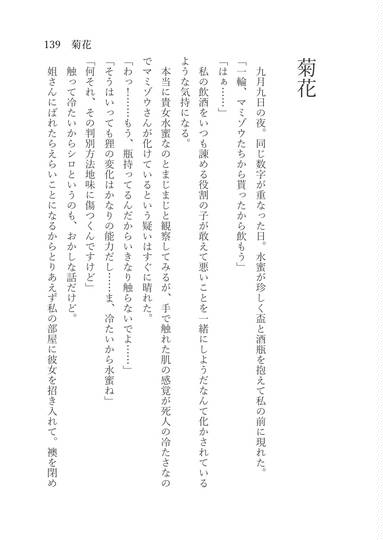 139　菊花
菊花
九月九日の夜。同じ数字が重なった日。水蜜が珍しく盃と酒瓶を抱えて私の前に現れた。
「一輪、マミゾウたちから貰ったから飲もう」
「はぁ……」
私の飲酒をいつも諫める役割の子が敢えて悪いことを一緒にしようだなんて化かされている
ような気持になる。
本当に貴女水蜜なのとまじまじと観察してみるが、手で触れた肌の感覚が死人の冷たさなの
でマミゾウさんが化けているという疑いはすぐに晴れた。
「わっ！……もう、瓶持ってるんだからいきなり触らないでよ……」
「そうはいっても狸の変化はかなりの能力だし……ま、冷たいから水蜜ね」
「何それ、その判別方法地味に傷つくんですけど」
触って冷たいからシロというのも、おかしな話だけど。
姐さんにばれたらえらいことになるからとりあえず私の部屋に彼女を招き入れて。襖を閉め